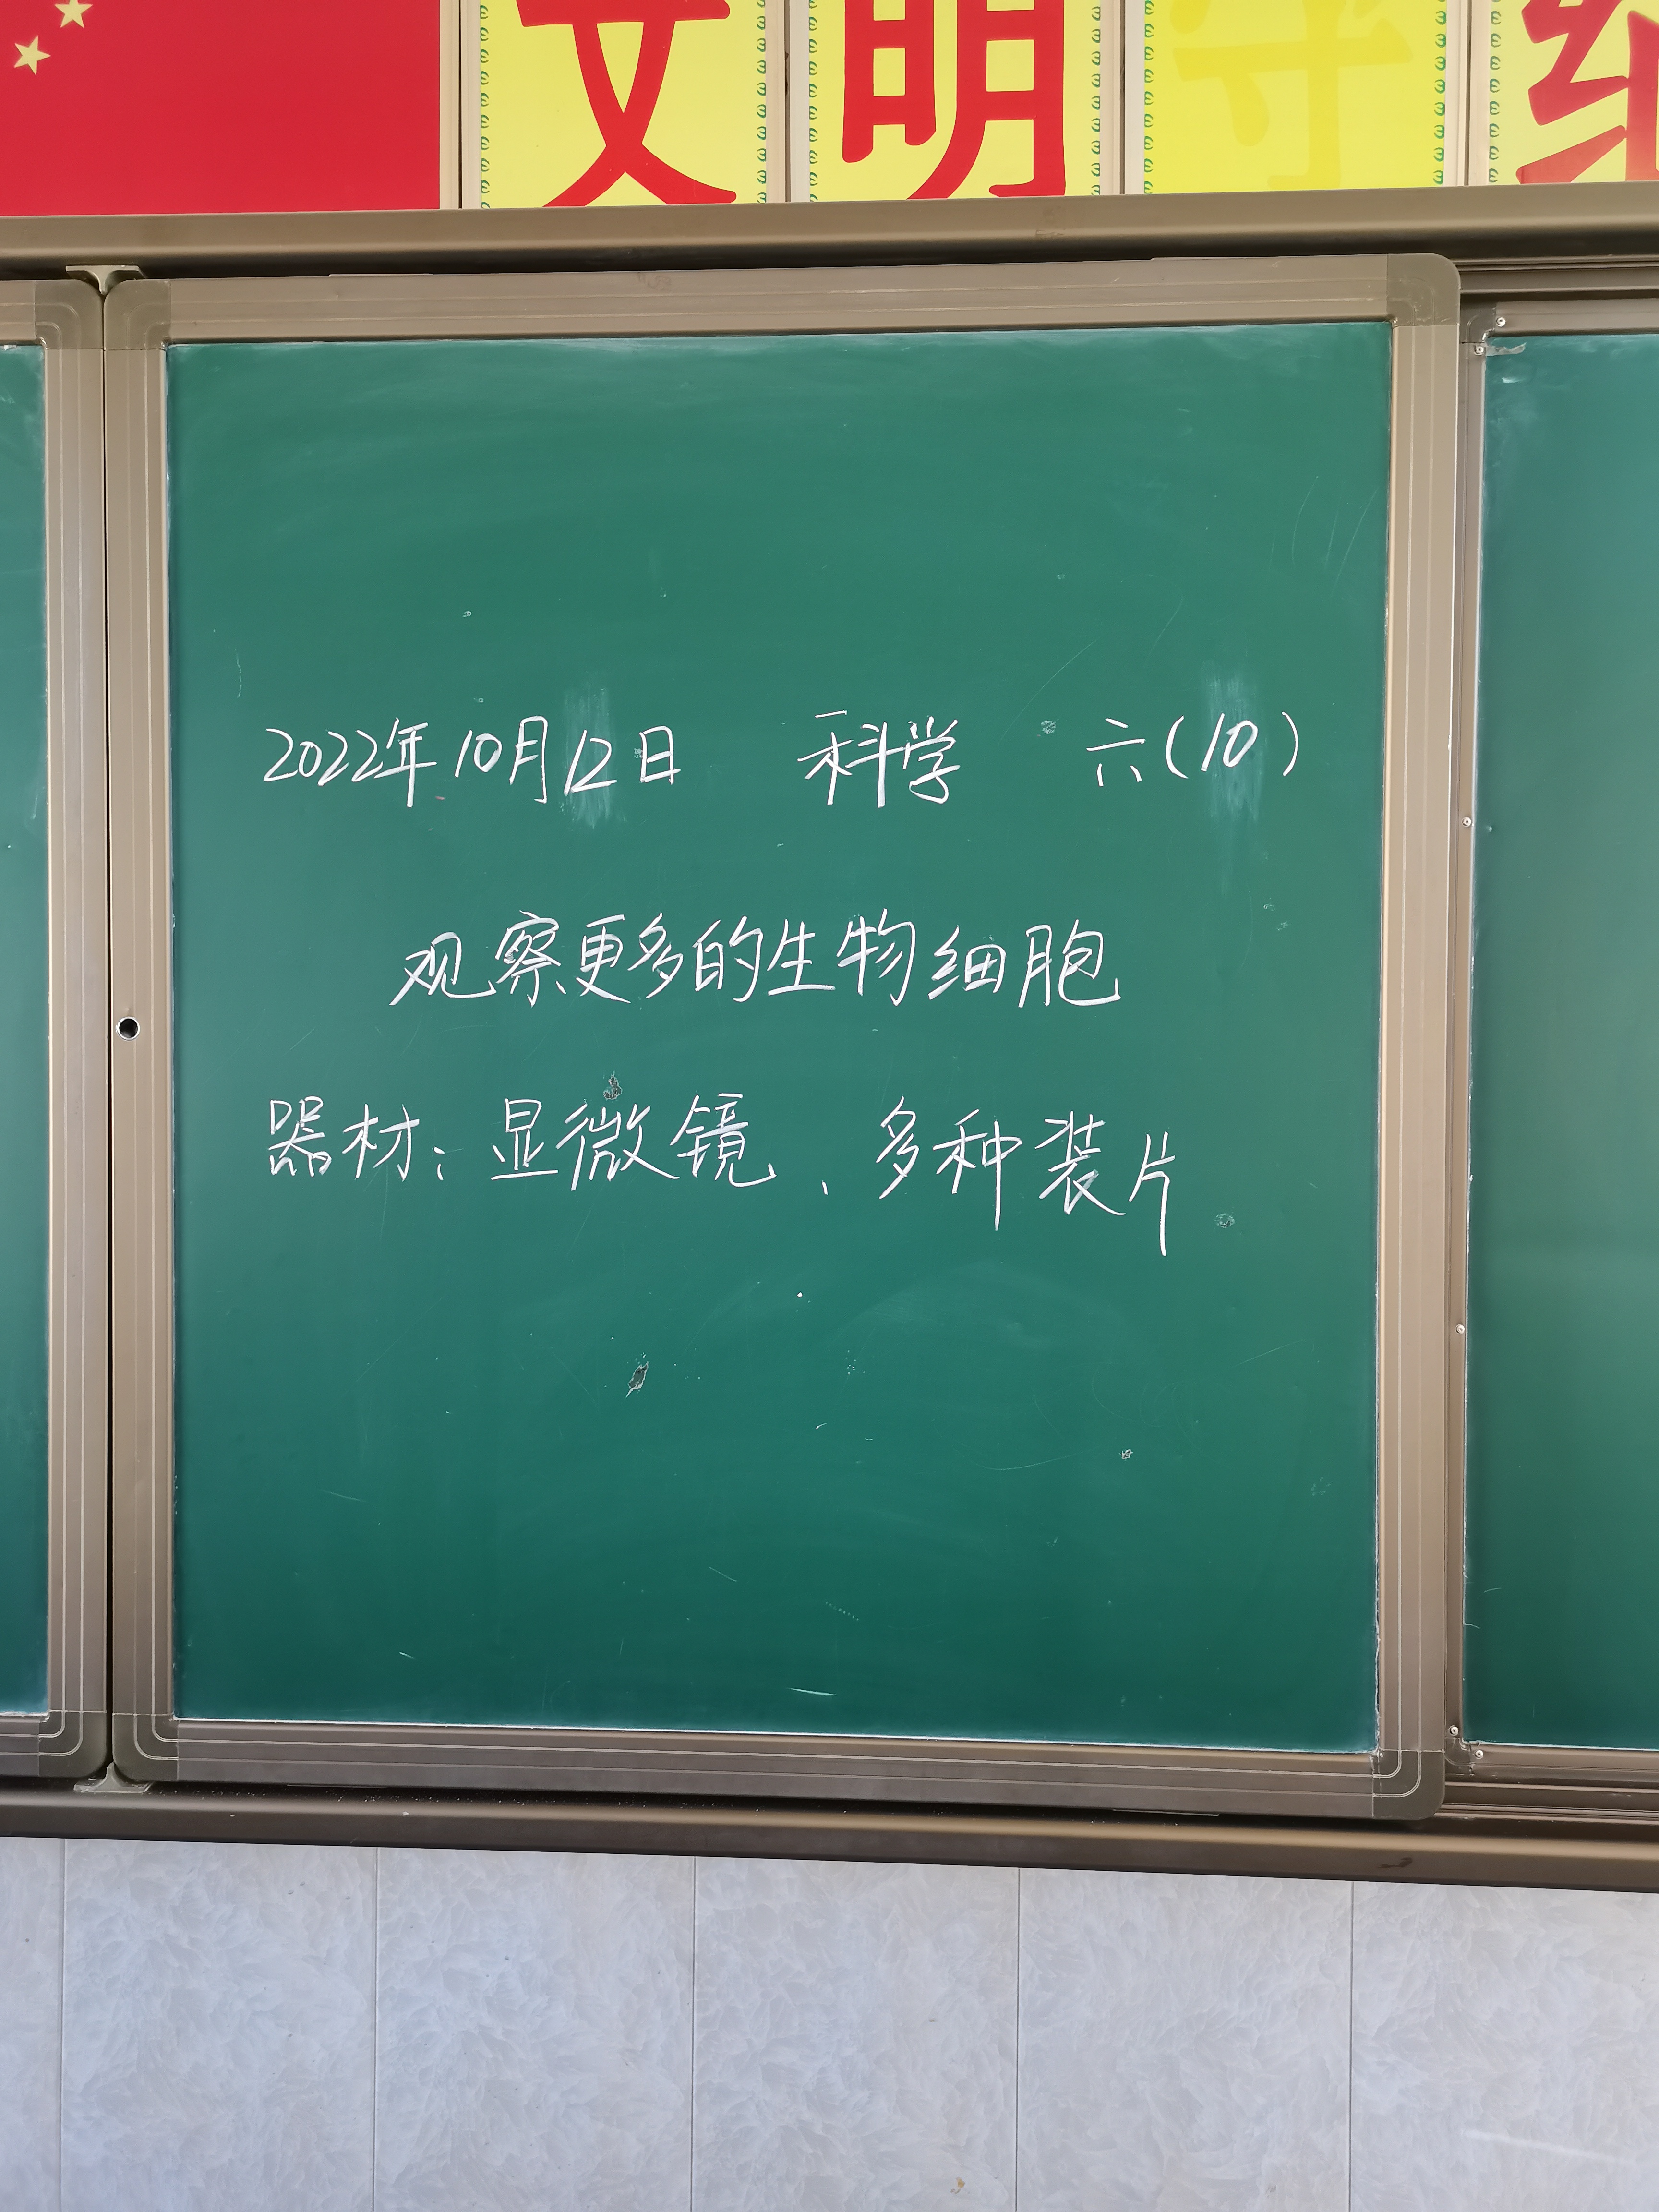 文明守纪
2022年10月12日 科学 六(10)
观察更多的生物细胞
器材:显微镜、多种装片